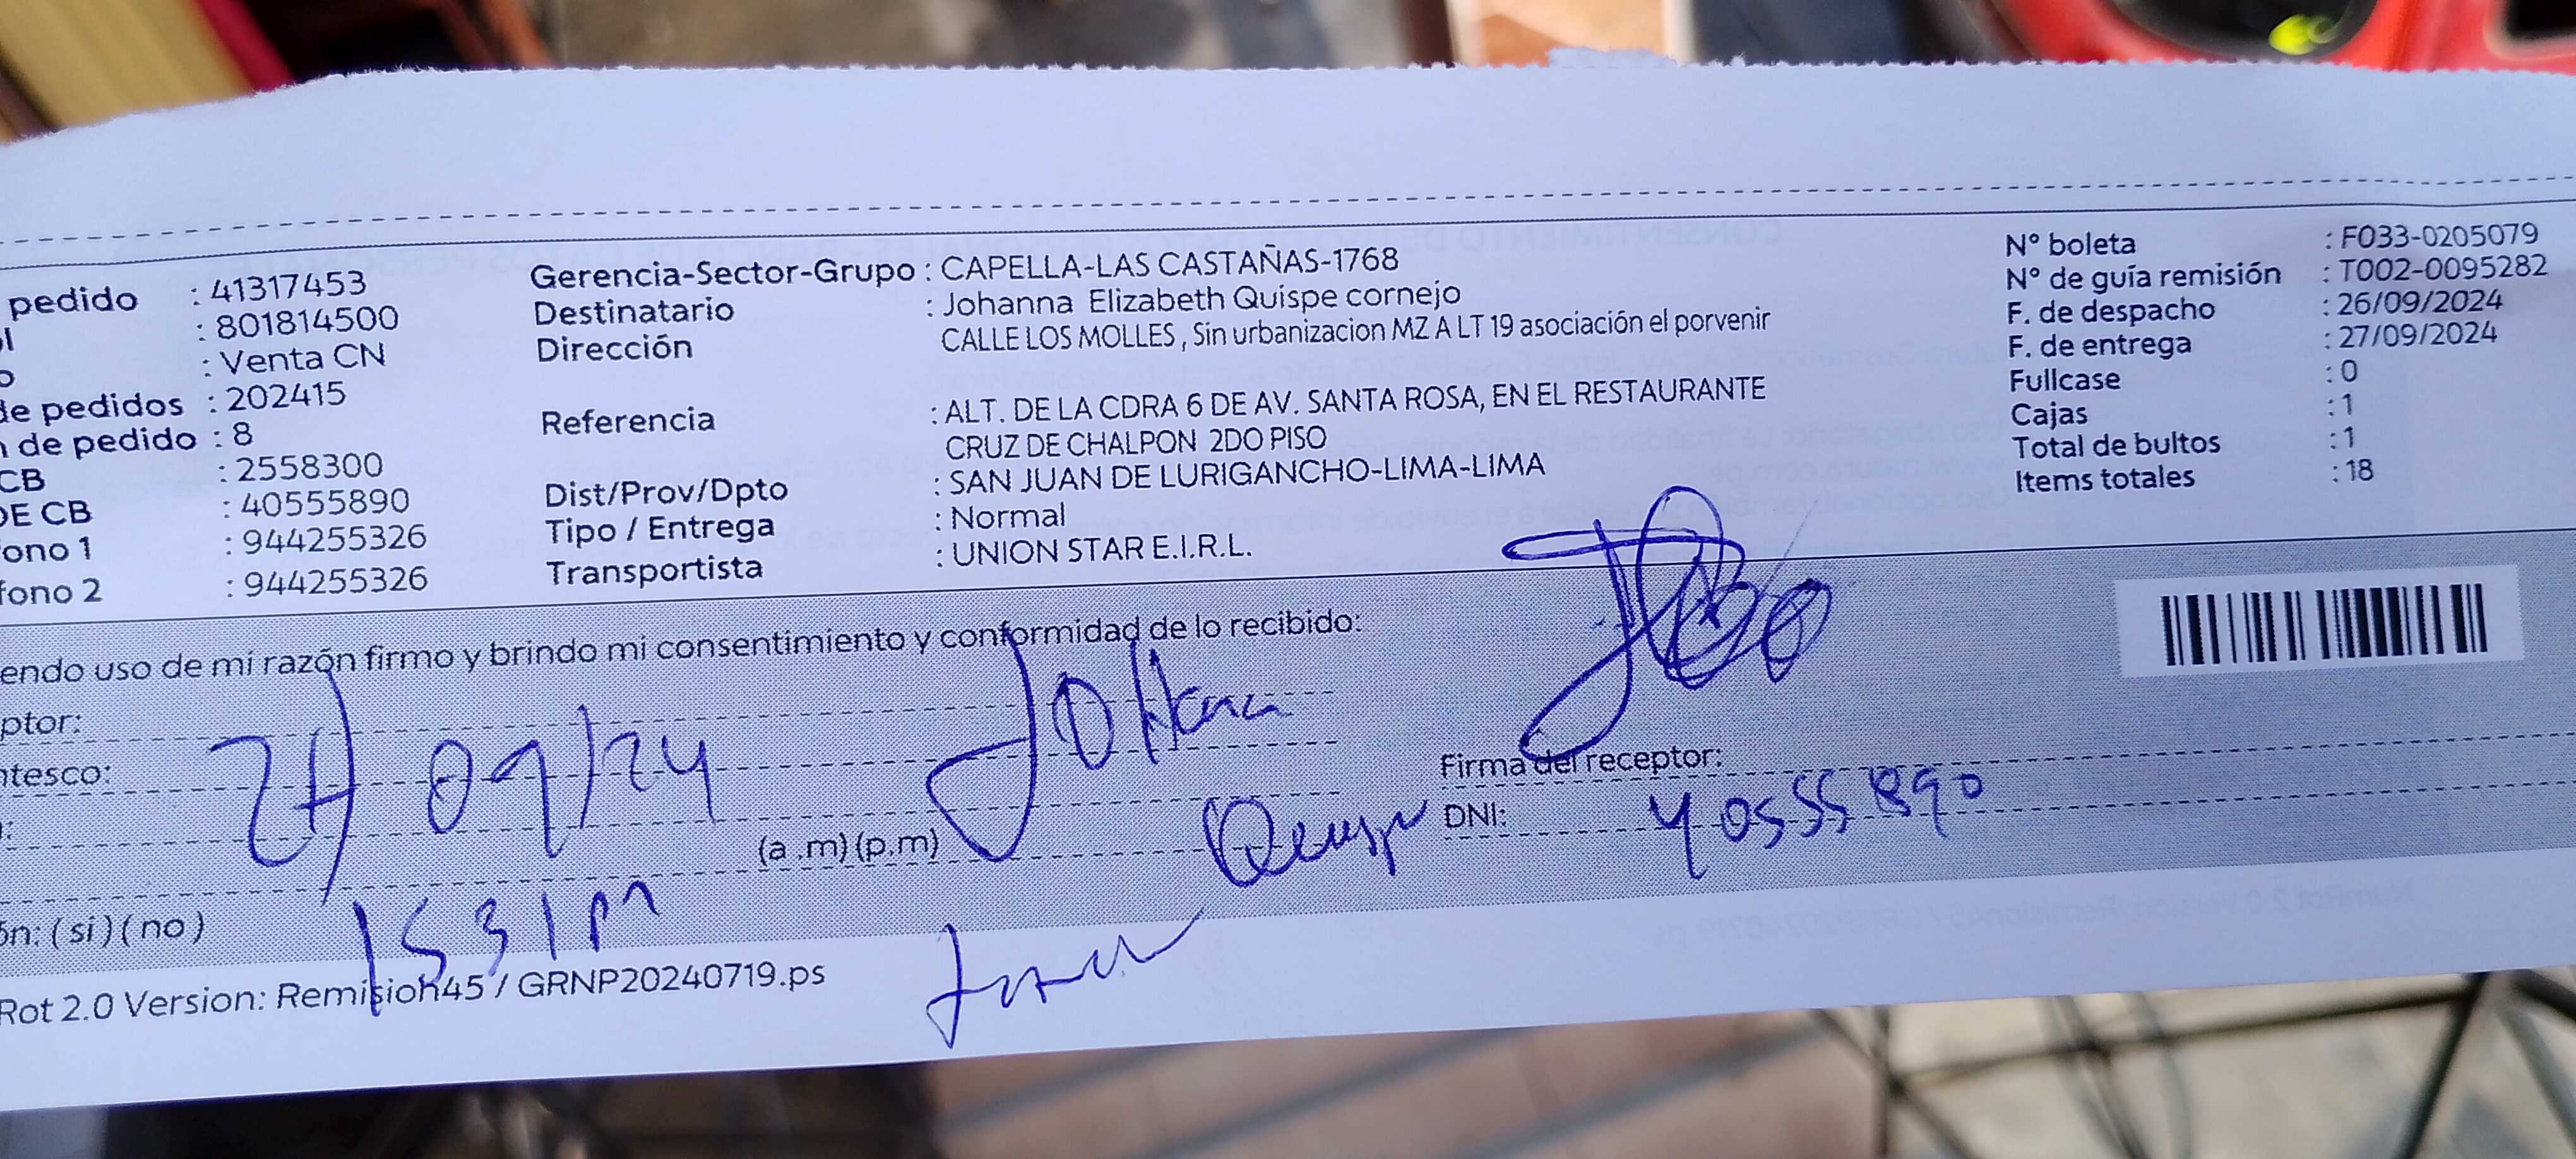 pedido : 41317453
: 801814500
: Venta CN
de pedidos : 202415
de pedido : 8
CB : 2558300
DE CB : 40555890
fono 1 : 944255326
fono 2 : 944255326
Gerencia-Sector-Grupo : CAPELLA-LAS CASTAÑAS-1768
Destinatario : Johanna Elizabeth Quispe cornejo
Dirección CALLE LOS MOLLES , Sin urbanizacion MZ A LT 19 asociación el porvenir
Referencia : ALT. DE LA CDRA 6 DE AV. SANTA ROSA, EN EL RESTAURANTE
CRUZ DE CHALPON 2DO PISO
Dist/Prov/Dpto : SAN JUAN DE LURIGANCHO-LIMA-LIMA
Tipo / Entrega : Normal
Transportista : UNION STAR E.I.R.L.
N° boleta : F033-0205079
N° de guía remisión : T002-0095282
F. de despacho : 26/09/2024
F. de entrega : 27/09/2024
Fullcase : 0
Cajas : 1
Total de bultos : 1
Items totales : 18
endo uso de mi razón firmo y brindo mi consentimiento y conformidad de lo recibido:
ptor:
ntesco:
27/09/24
Johana
Quispe
(a .m) (p.m)
Firma del receptor:
DNI: 40555890
ón: ( si ) ( no )
1531pm
Rot 2.0 Version: Remision45 / GRNP20240719.ps